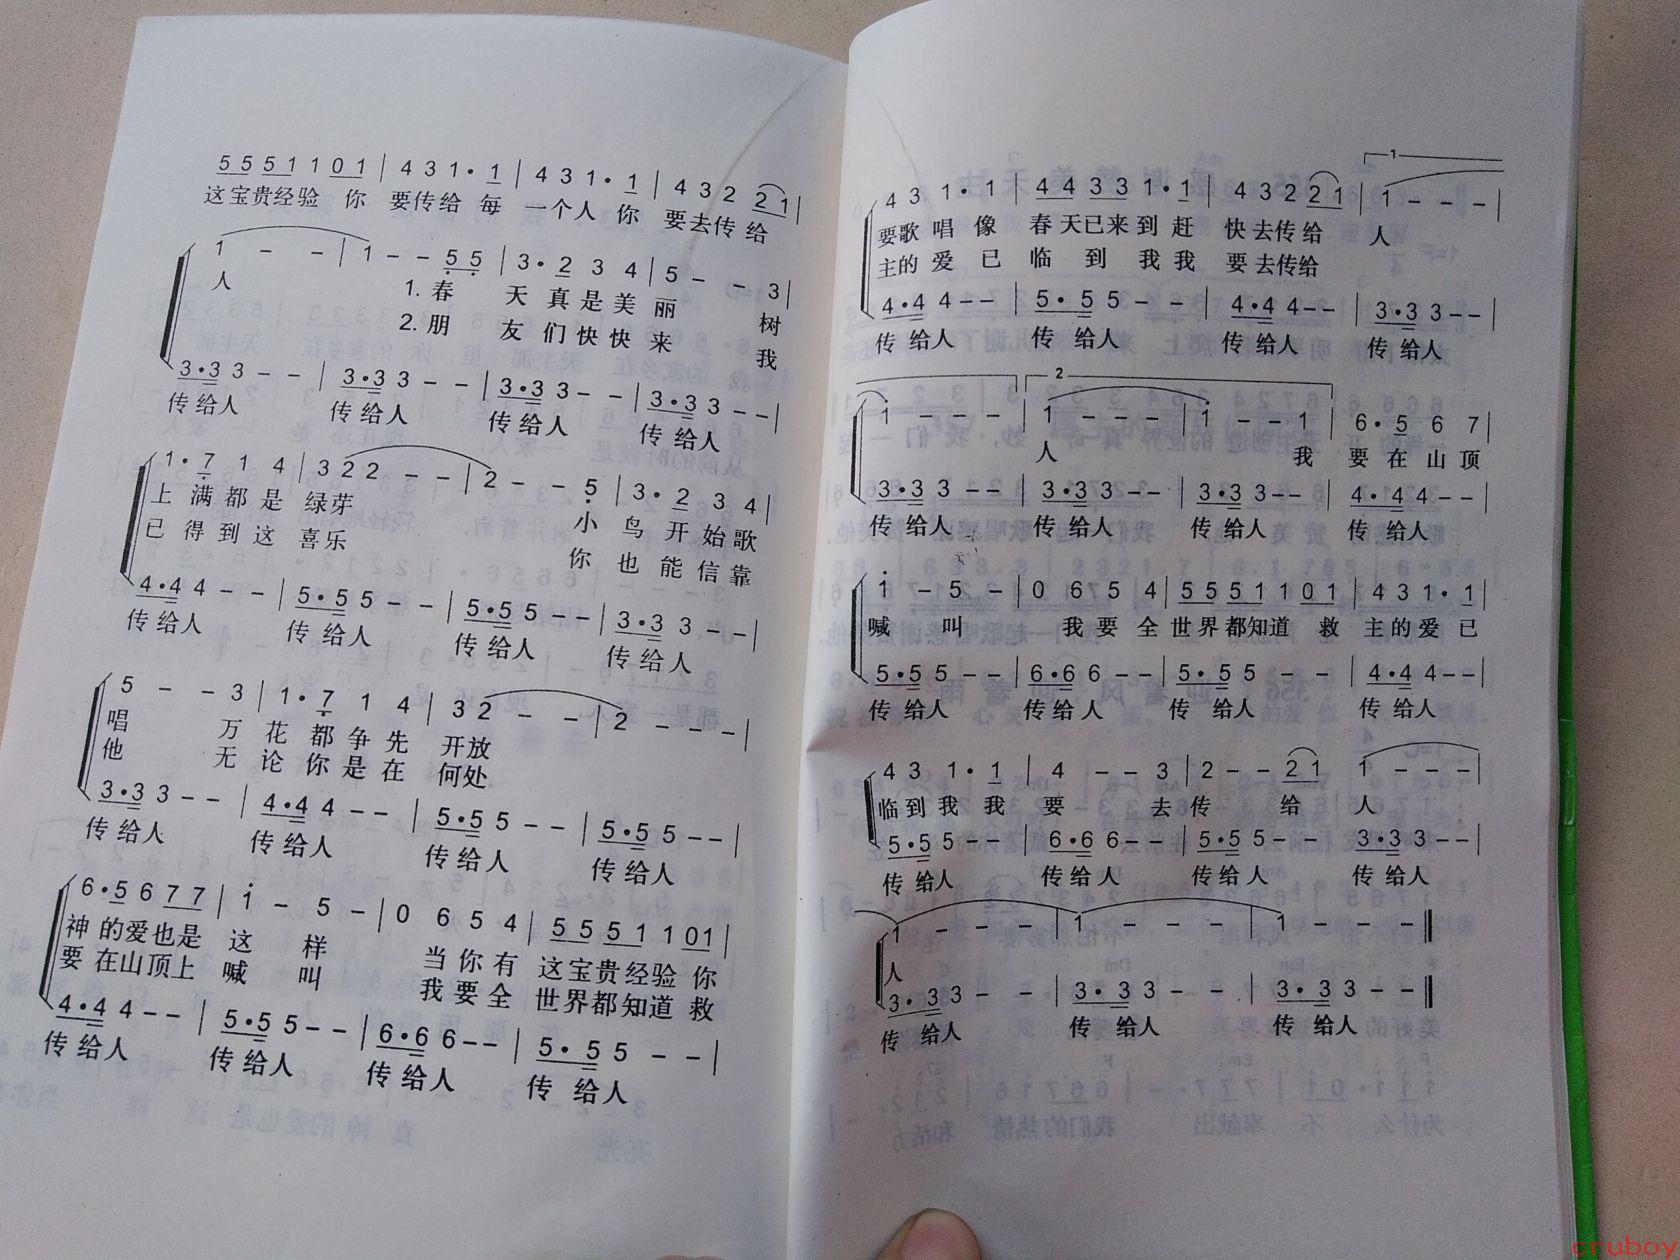 5 5 5 1 1 0 1 | 4 3 1 · 1 | 4 3 1 · 1 | 4 3 2 2 1
这宝贵经验 你 要传给 每 一个人 你 要去传给
1 - - | 1 - - 5 5 | 3 · 2 3 4 | 5 - - 3 |
人 1. 春 天 真 是 美 丽 树
2. 朋 友 们 快 快 来 我
3 · 3 3 - - | 3 · 3 3 - - | 3 · 3 3 - - | 3 · 3 3 - - |
传给人 传给人 传给人 传给人
1 · 7 1 4 | 3 2 2 - - | 2 - - 5 | 3 · 2 3 4 |
上 满 都 是 绿芽 小 鸟 开 始 歌
已 得 到 这 喜乐 你 也 能 信 靠
4 · 4 4 - - | 5 · 5 5 - - | 5 · 5 5 - - | 3 · 3 3 - - |
传给人 传给人 传给人 传给人
5 - - 3 | 1 · 7 1 4 | 3 2 - - | 2 - - - |
唱 万 花 都 争 先 开放
他 无 论 你 是 在 何处
3 · 3 3 - - | 4 · 4 4 - - | 5 · 5 5 - - | 5 · 5 5 - - |
传给人 传给人 传给人 传给人
6 · 5 6 7 7 | 1 - 5 - | 0 6 5 4 | 5 5 5 1 1 0 1 |
神 的爱也是 这 样 当 你 有 这宝贵经验 你
要 在山顶上 喊 叫 我 要 全 世界都知道 救
4 · 4 4 - - | 5 · 5 5 - - | 6 · 6 6 - - | 5 · 5 5 - - |
传给人 传给人 传给人 传给人
1
4 3 1 · 1 | 4 4 3 3 1 · 1 | 4 3 2 2 2 1 | 1 - - - |
要歌 唱 像 春天已来到 赶 快去传给 人
主的 爱 已 临 到 我 我 要去传给
4 · 4 4 - - | 5 · 5 5 - - | 4 · 4 4 - - | 3 · 3 3 - - |
传给人 传给人 传给人 传给人
2
1 - - - | 1 - - - | 1 - - 1 | 6 · 5 6 7 |
人 我 要 在 山 顶
3 · 3 3 - - | 3 · 3 3 - - | 3 · 3 3 - - | 4 · 4 4 - - |
传给人 传给人 传给人 传给人
1 - 5 - | 0 6 5 4 | 5 5 5 1 1 0 1 | 4 3 1 · 1 |
喊 叫 我 要 全 世界都知道 救 主的爱已
5 · 5 5 - - | 6 · 6 6 - - | 5 · 5 5 - - | 4 · 4 4 - - |
传给人 传给人 传给人 传给人
4 3 1 · 1 | 4 - - 3 | 2 - - 2 1 1 - - - |
临到我 我 要 去 传 给 人
5 · 5 5 - - | 6 · 6 6 - - | 5 · 5 5 - - 3 · 3 3 - - |
传给人 传给人 传给人 传给人
1 - - - | 1 - - - | 1 - - -
人
3 · 3 3 - - | 3 · 3 3 - - | 3 · 3 3 - -
传 给人 传给人 传给人
cruboy